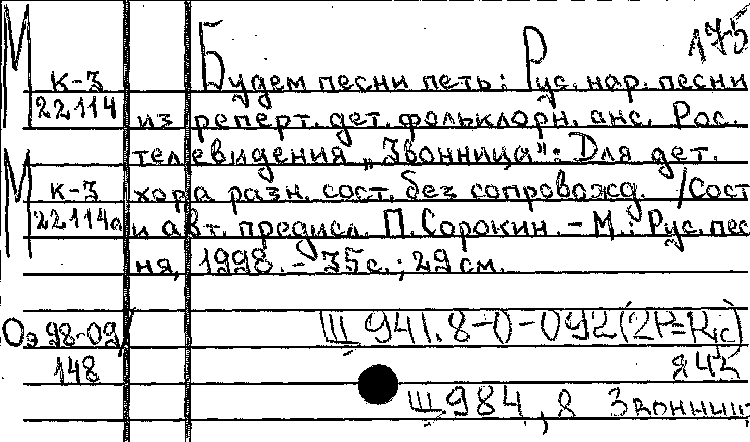 175
М Будем песни петь: Рус. нар. песни
К-3
22114 из реперт. дет. фольклорн. анс. Рос.
телевидения „Звонница": Для дет.
М К-3 хора разн. сост. без сопровожд. /Сост
22114а и авт. предисл. П. Сорокин. - М.: Рус. пес
ня, 1998. - 35 с.; 29 см.
Оэ 98-09/ Щ 941.8-0-092(2Р=Рус)
148 я 43
Щ 984, 8 Звонниц